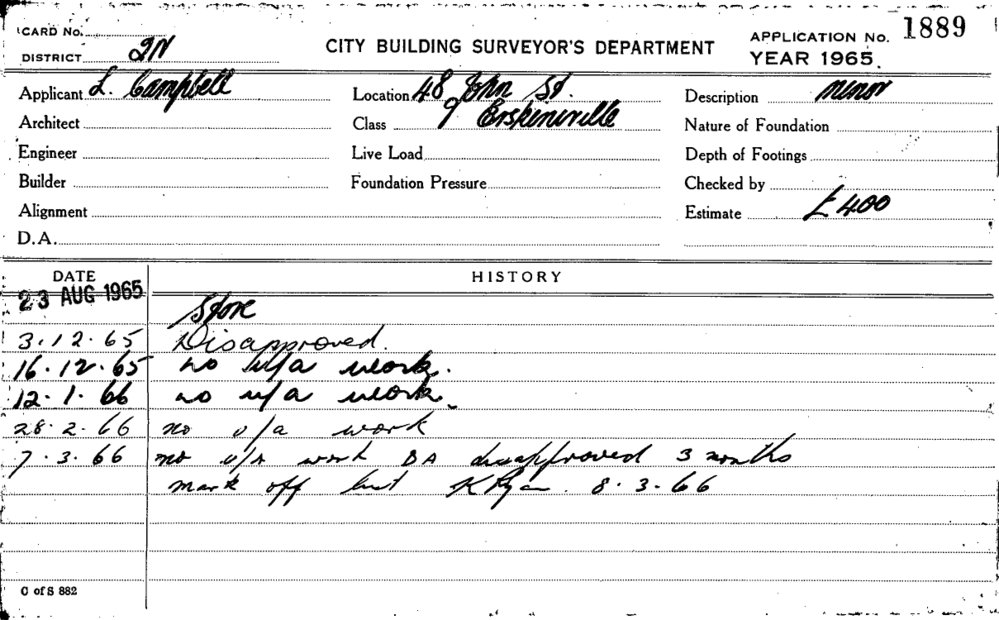 CARD No.
DISTRICT 2N
CITY BUILDING SURVEYOR'S DEPARTMENT
APPLICATION No. 1889
YEAR 1965.
Applicant L. Campbell
Location 48 John St.
Description minor
Architect
Class 9 Erskineville
Nature of Foundation
Engineer
Live Load
Depth of Footings
Builder
Foundation Pressure
Checked by
Alignment
Estimate £400
D.A.
DATE
HISTORY
23 AUG 1965
Store
3.12.65 Disapproved.
16.12.65 no u/a work.
12.1.66 no u/a work.
28.2.66 no u/a work
7.3.66 no u/a work DA disapproved 3 months
mark off list K Ryan. 8.3.66
C of S 882